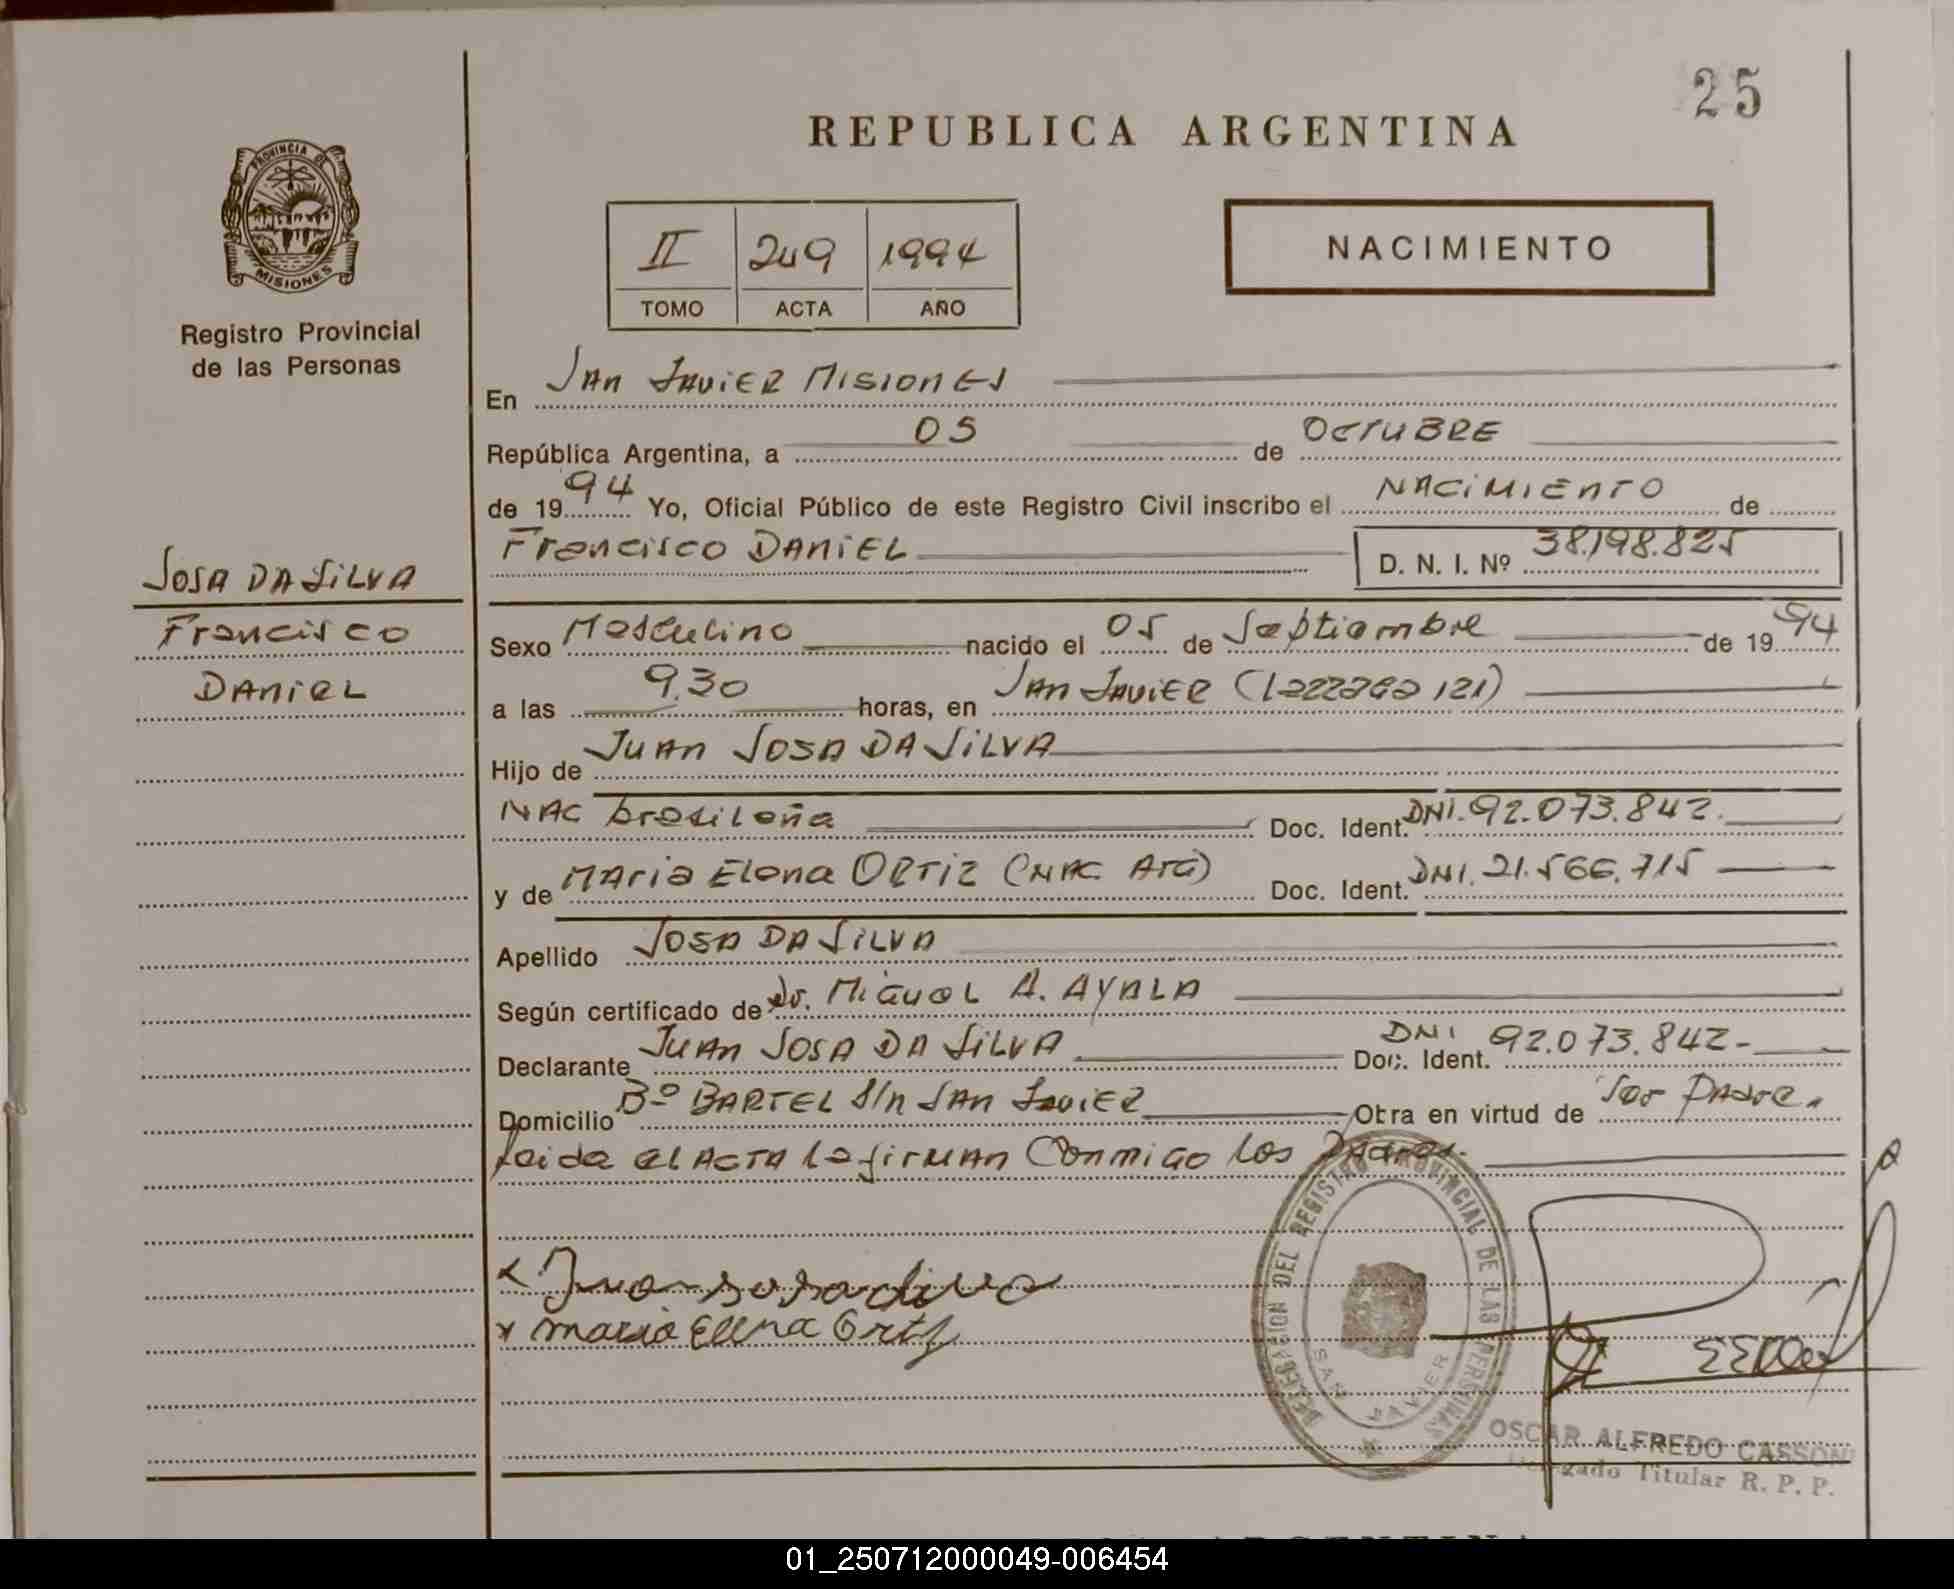 25
REPUBLICA ARGENTINA
PROVINCIA DE
MISIONES
Registro Provincial
de las Personas
II 249 1994
TOMO ACTA AÑO
NACIMIENTO
En San Javier Misiones
República Argentina, a 05 de Octubre
de 1994 Yo, Oficial Público de este Registro Civil inscribo el Nacimiento de
Francisco Daniel D. N. I. Nº 38.198.825
Sosa Da Silva
Francisco
Daniel
Sexo Masculino nacido el 05 de Septiembre de 1994
a las 9.30 horas, en San Javier (Lazzaga 121)
Hijo de Juan Sosa Da Silva
Nac brasileña Doc. Ident. DNI. 92.073.842.
y de Maria Elena Ortiz (Nac Arg) Doc. Ident. DNI. 21.566.715
Apellido Sosa Da Silva
Según certificado de Dr. Miguel A. Ayala
Declarante Juan Sosa Da Silva Doc. Ident. DNI 92.073.842-
Domicilio Bº Bartel S/n San Javier Obra en virtud de Ser Padre.
Leida el Acta la firman Conmigo los Padres.
x Juan sosa da silva
x maria Elena Ortiz
DELEGACION DEL REGISTRO PROVINCIAL DE LAS PERSONAS
SAN JAVIER
OSCAR ALFREDO CASSONI
Delegado Titular R. P. P.
01_250712000049-006454